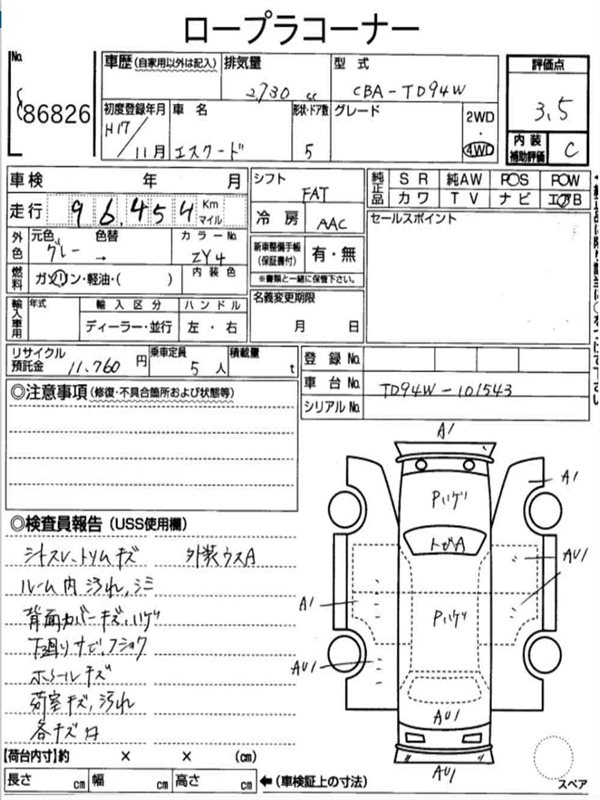 ロープラコーナー
No.
86826
車歴 (自家用以外は記入)
排気量
2730 cc
型式
CBA-TD94W
評価点
3.5
初度登録年月
H17/11月
車名
エスクード
形状・ドア数
5
グレード
2WD
・
4WD
内装
補助評価
C
車検 年 月
走行 96,454 Km
マイル
シフト
FAT
冷房
AAC
純正品
SR 純AW POS POW
カワ TV ナビ エアB
セールスポイント
外色
元色
グレー
色替
→
カラーNo.
ZY4
燃料
ガソリン・軽油・( )
内装色
新車整備手帳
(保証書付)
有・無
※書類と一緒に保管下さい。
輸入車用
年式
輸入区分
ディーラー・並行
ハンドル
左・右
名義変更期限
月 日
リサイクル
預託金 11,760 円
乗車定員
5 人
積載量
t
登録No.
車台No.
TD94W-101543
シリアルNo.
◎注意事項 (修復・不具合箇所および状態等)
◎検査員報告 (USS使用欄)
シート スレ、トリム キズ 外装ウスA
ルーム内 汚れ、シミ
背面カバー キズ、ハゲ
下廻りサビ、フショク
ホイールキズ
荷室キズ、汚れ
各キズ
A1
A1
Pハゲ
トビA
AU1
A1
Pハゲ
AU1
AU1
AU1
スペア
【荷台内寸】約 × × (cm)
長さ cm 幅 cm 高さ cm ←(車検証上の寸法)